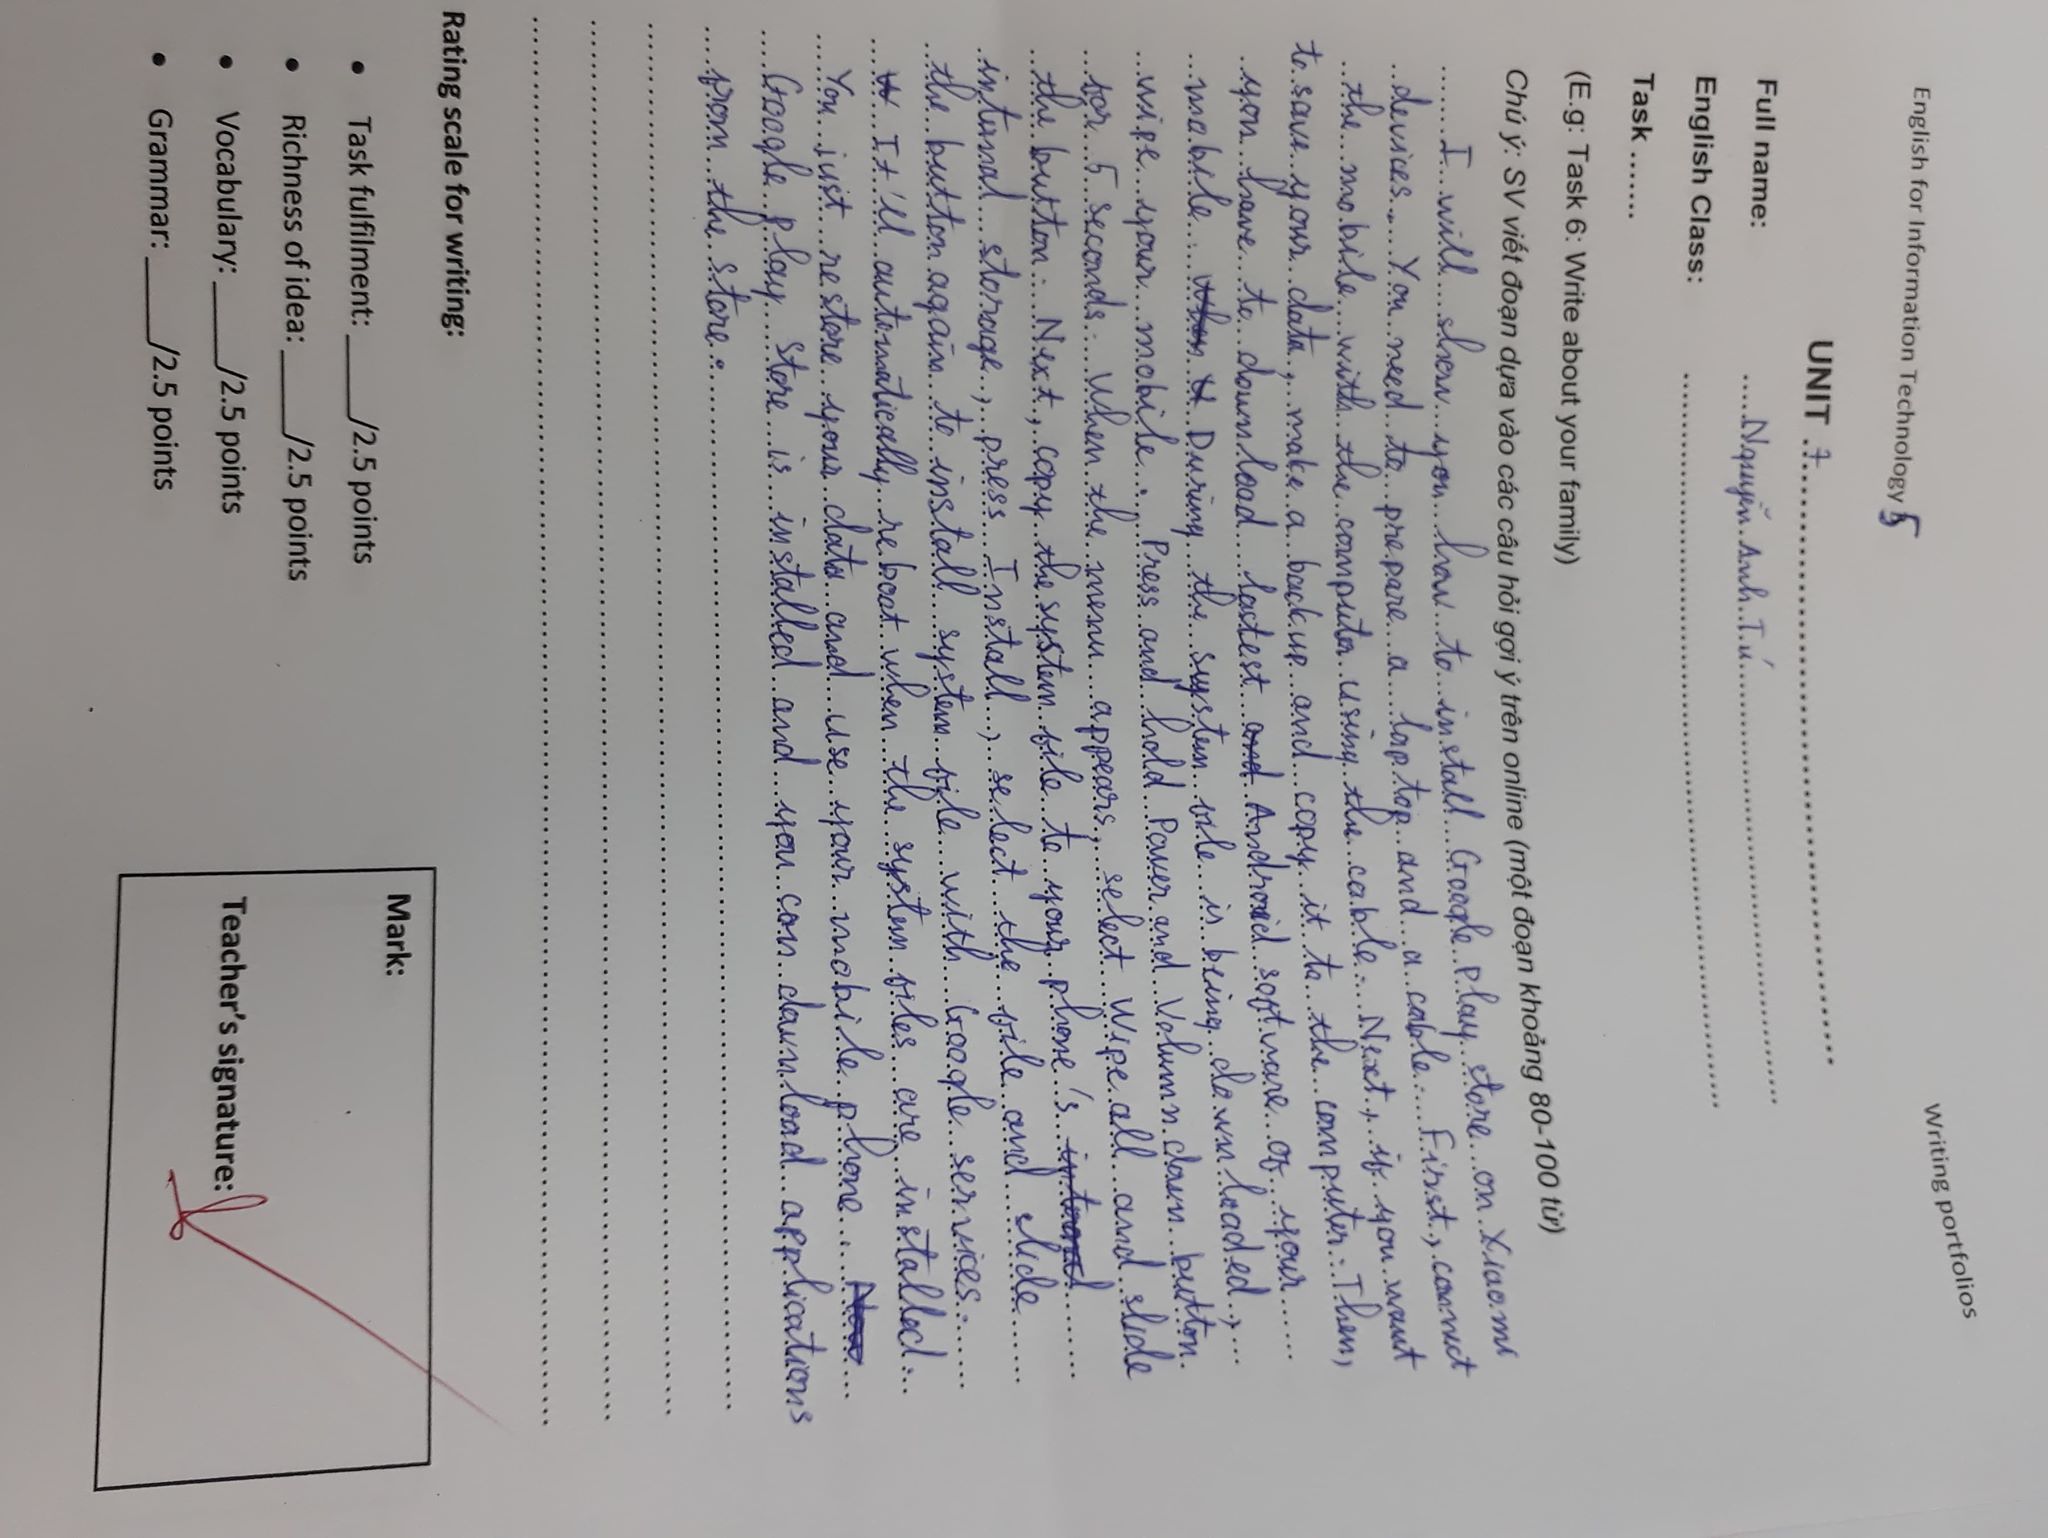 English for Information Technology 5
Writing portfolios
UNIT .7..........................................
Full name: ....Nguyễn Anh Tú..............................
English Class: ..........................................
Task ......
(E.g: Task 6: Write about your family)
Chú ý: SV viết đoạn dựa vào các câu hỏi gợi ý trên online (một đoạn khoảng 80-100 từ)
I will show you how to install Google Play store on Xiaomi
devices. You need to prepare a laptop and a cable. First, connect
the mobile with the computer using the cable. Next, if you want
to save your data, make a backup and copy it to the computer. Then,
you have to download lastest Android software of your
mobile. During the system file is being downloaded,
wipe your mobile. Press and hold Power and Volumn down button
for 5 seconds. When the menu appears, select Wipe all and slide
the button. Next, copy the system file to your phone's
internal storage, press Install, select the file and slide
the button again to install system file with Google services.
It'll automatically reboot when the system files are installed.
You just restore your data and use your mobile phone.
Google play store is installed and you can download applications
from the store.
Rating scale for writing:
• Task fulfilment: _____/2.5 points
• Richness of idea: _____/2.5 points
• Vocabulary: _____/2.5 points
• Grammar: _____/2.5 points
Mark:
Teacher's signature: